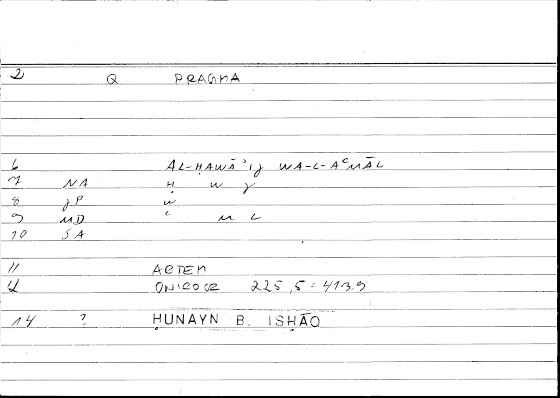 2 Q PRAGMA
6 AL-ḤAWĀʾIǧ WA-L-AʿMĀL
7 NA Ḥ W ǧ
8 ǧP W
9 MD ʿ M L
10 SA
11 ARTEM
12 ONIROCR 225,5 = 413.9
14 ? ḤUNAYN B. ISḤĀQ